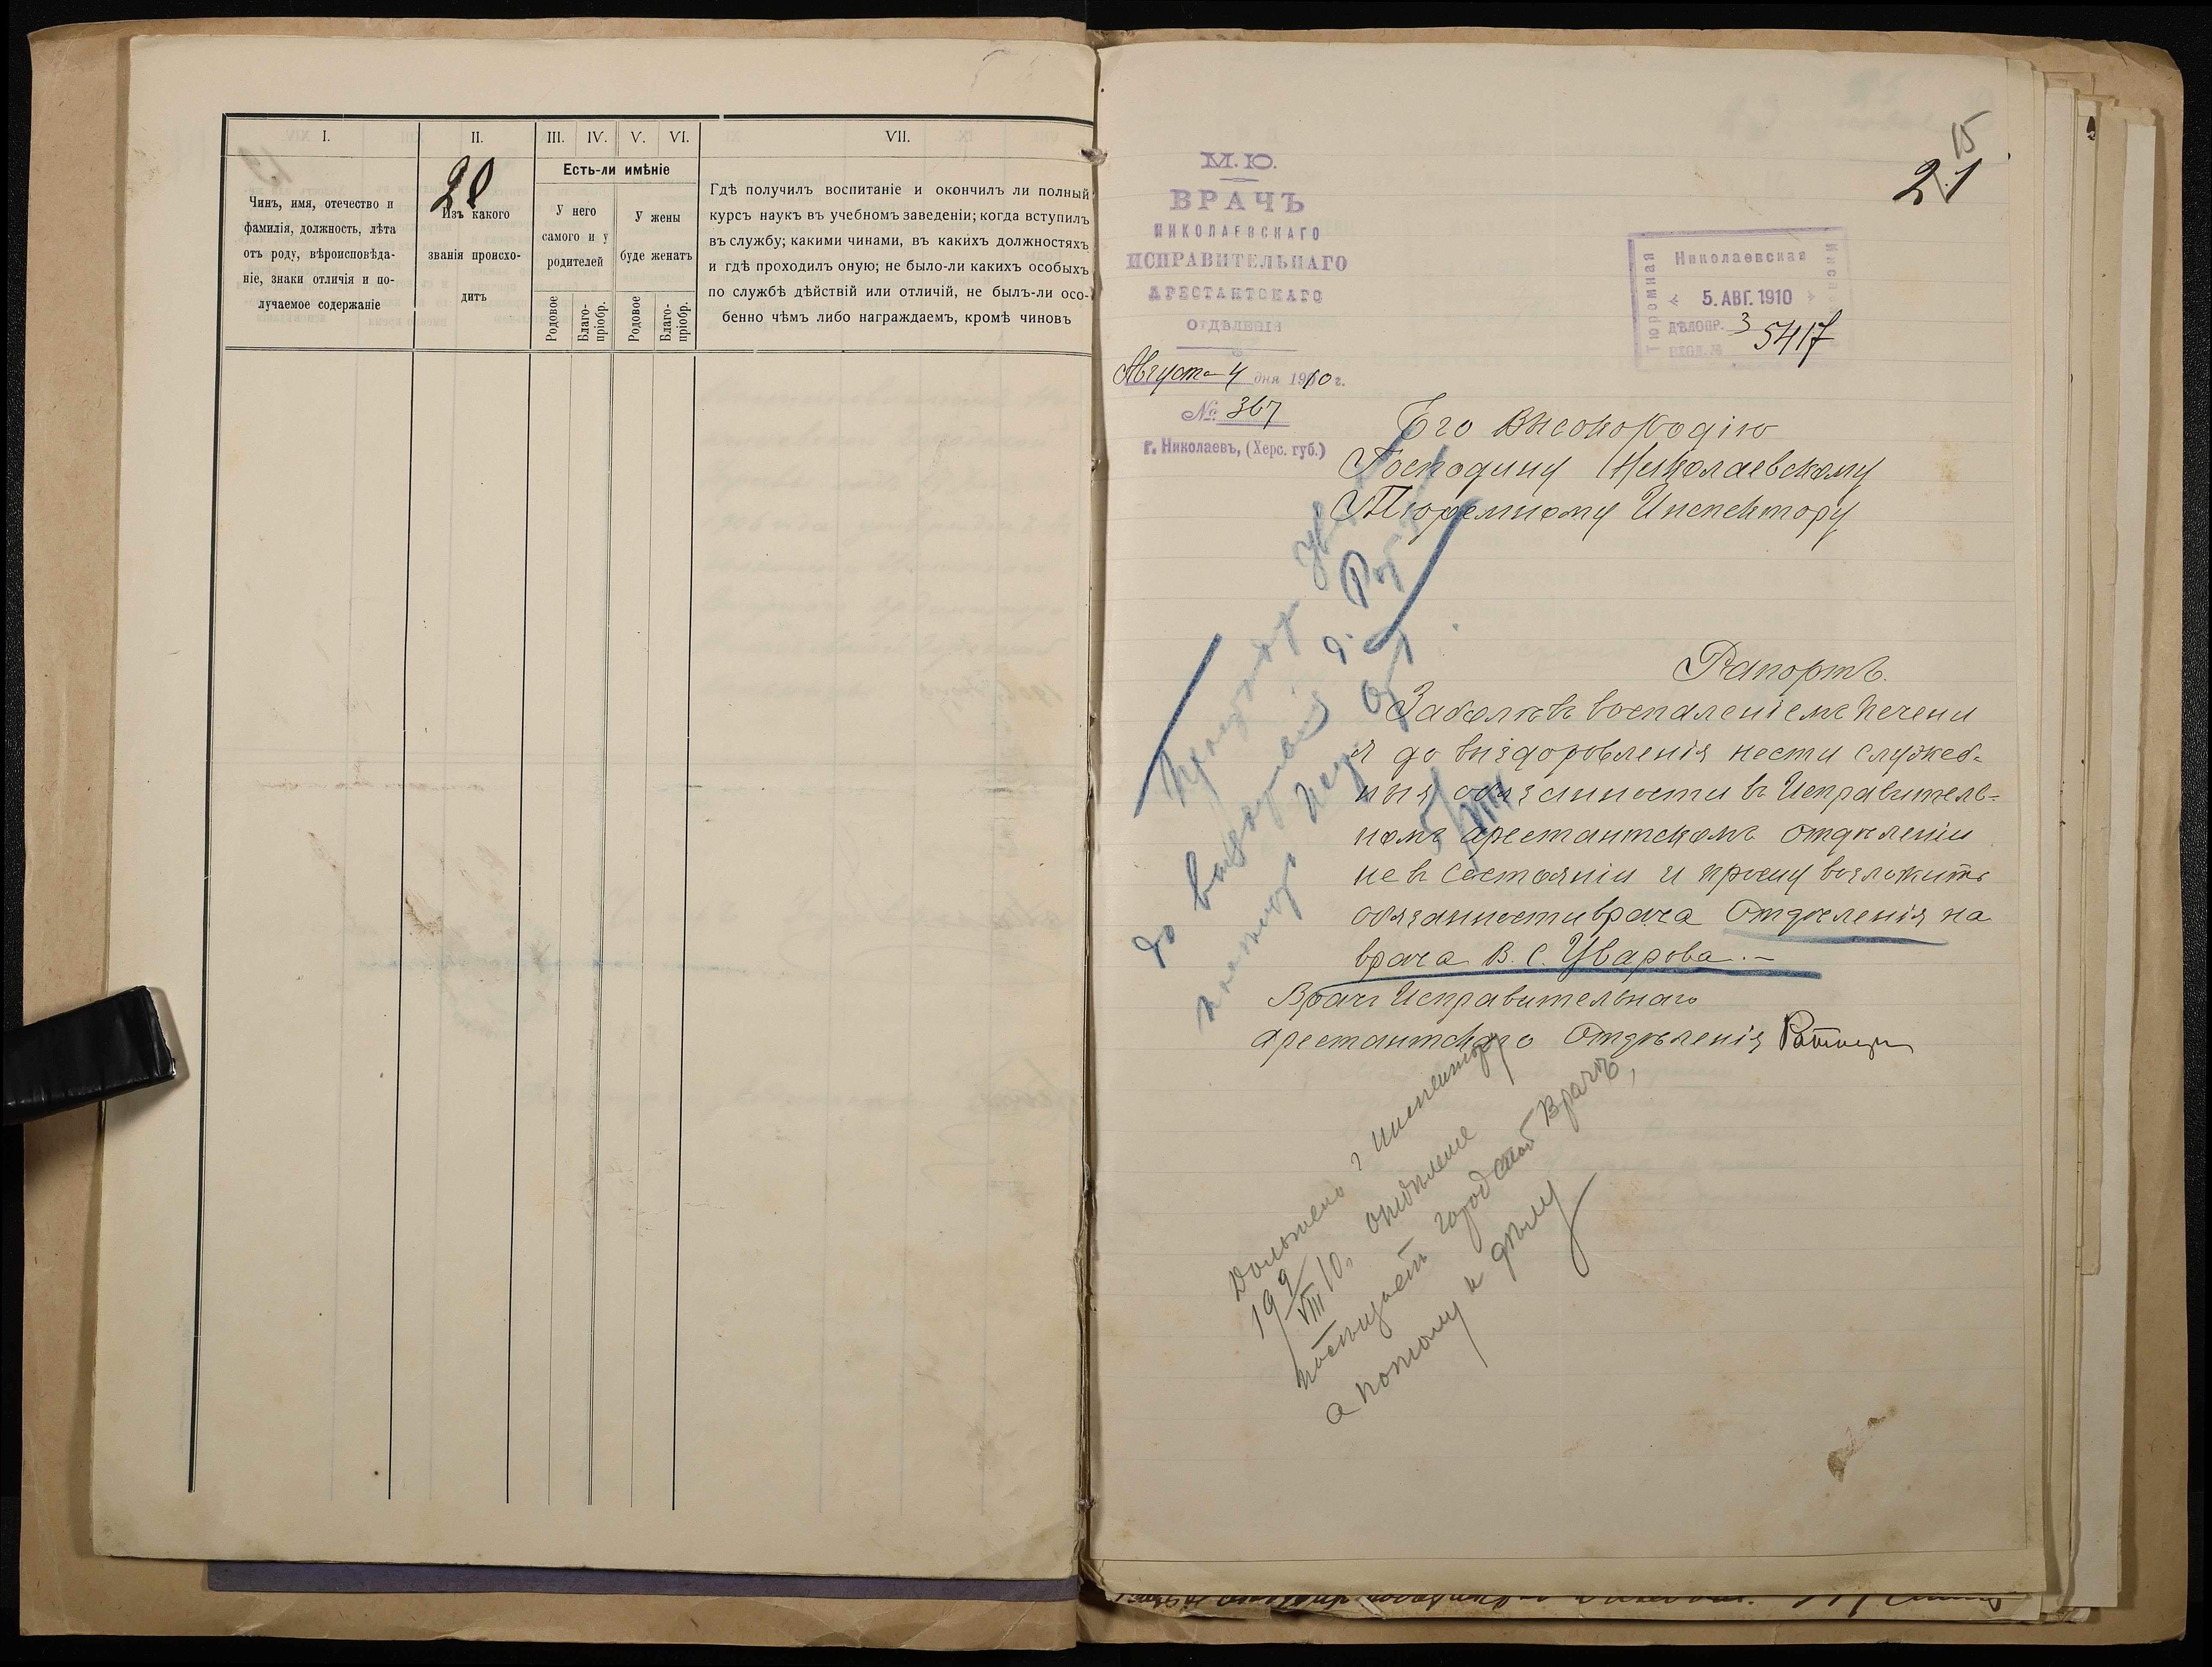 I. II. III. IV. V. VI. VII.
20
Есть-ли имѣніе
Чинъ, имя, отечество и
фамилія, должность, лѣта
отъ роду, вѣроисповѣда-
ніе, знаки отличія и по-
лучаемое содержаніе
Изъ какого
званія происхо-
дитъ
У него
самого и у
родителей
У жены
буде женатъ
Родовое
Благо-
пріобр.
Родовое
Благо-
пріобр.
Гдѣ получилъ воспитаніе и окончилъ ли полный
курсъ наукъ въ учебномъ заведеніи; когда вступилъ
въ службу; какими чинами, въ какихъ должностяхъ
и гдѣ проходилъ оную; не было-ли какихъ особыхъ
по службѣ дѣйствій или отличій, не былъ-ли осо-
бенно чѣмъ либо награждаемъ, кромѣ чиновъ
15
21
М. Ю.
ВРАЧЪ
НИКОЛАЕВСКАГО
ИСПРАВИТЕЛЬНАГО
АРЕСТАНТСКАГО
ОТДѢЛЕНІЯ
Августа 4 дня 1910 г.
№ 367
г. Николаевъ, (Херс. губ.)
Николаевская
Тюремная
5. АВГ. 1910
ДѢЛОПР. 3
ВХОД. № 5417
Его Высокородію
Господину Николаевскому
Тюремному Инспектору
Рапортъ.
Заболѣвъ воспаленіемъ печени
я до выздоровленія нести служеб-
ныя обязанности въ Исправитель-
номъ арестантскомъ отдѣленіи
не въ состояніи и прошу возложить
обязанности врача Отдѣленія на
врача В. С. Уварова. –
Врачъ Исправительнаго
арестантскаго Отдѣленія
5/VIII
Доложено г инспектору
19 9/VIII 10, отдѣленіе
посѣщаетъ городской врачъ,
а потому къ дѣлу